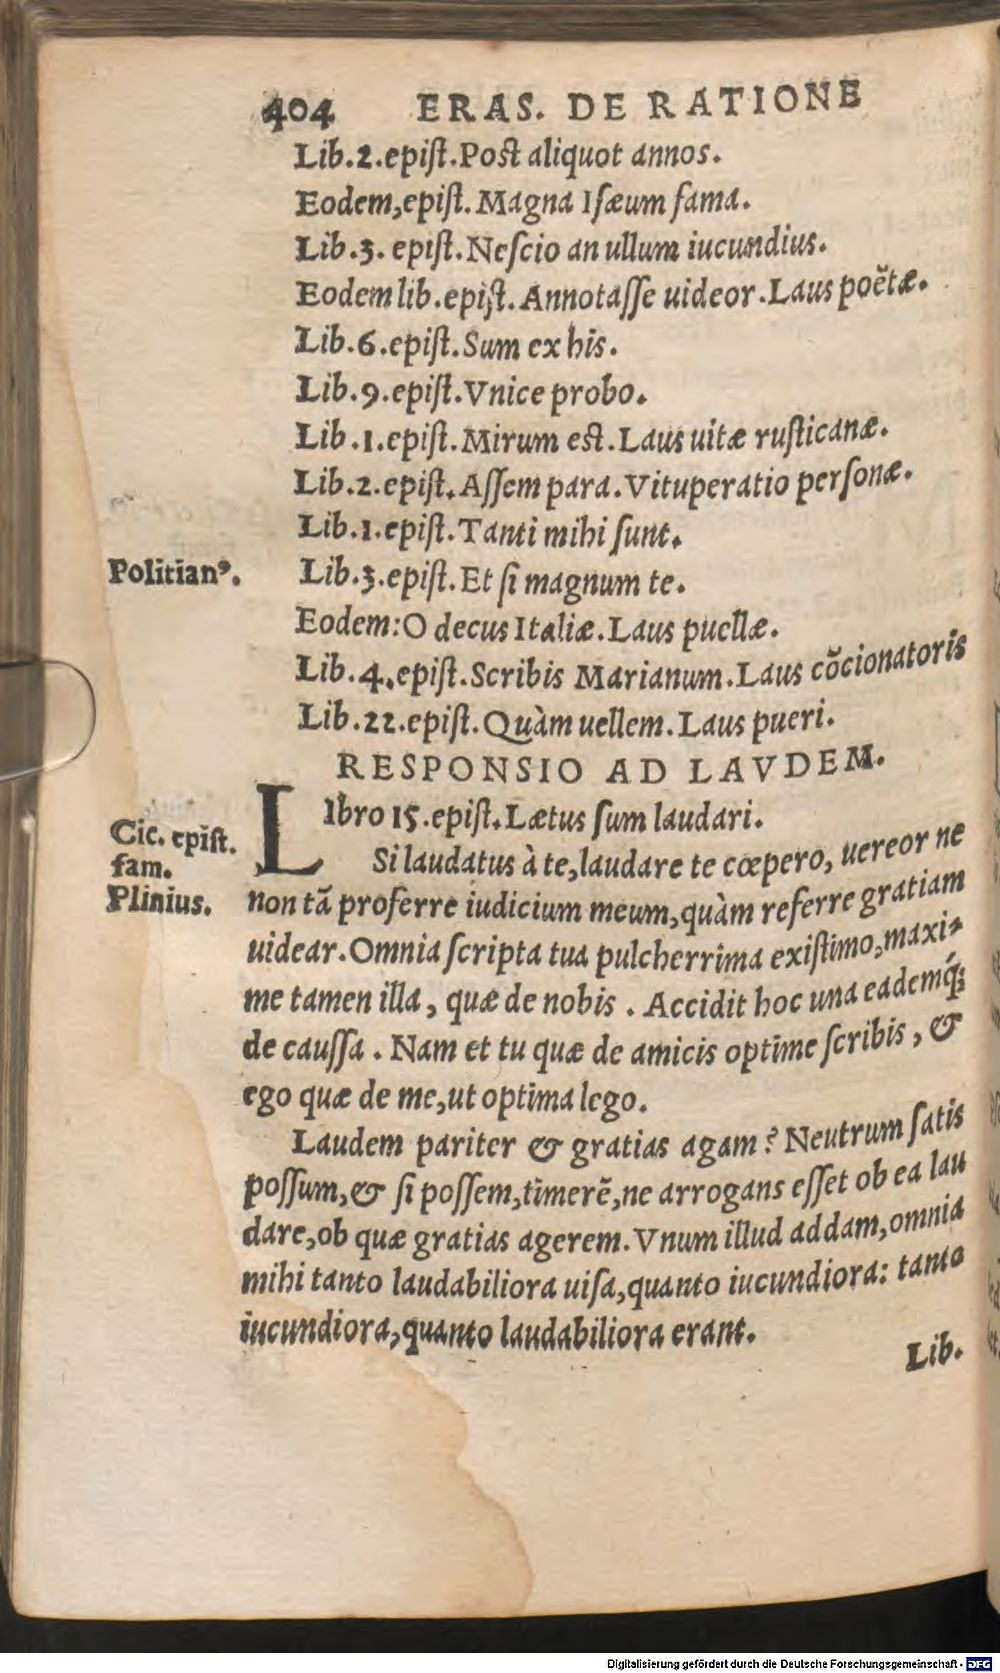 404 ERAS. DE RATIONE
Lib.2.epiſt.Post aliquot annos.
Eodem,epiſt.Magna Iſæum fama.
Lib.3. epiſt.Neſcio an ullum iucundius.
Eodem lib.epiſt.Annotaſſe uideor.Laus poëtæ.
Lib.6.epiſt.Sum ex his.
Lib.9.epiſt.Vnice probo.
Lib.1.epiſt.Mirum est.Laus uitæ ruſticanæ.
Lib.2.epiſt.Aſſem para.Vituperatio perſonæ.
Lib.1.epiſt.Tanti mihi ſunt.
Politianꝰ. Lib.3.epiſt.Et ſi magnum te.
Eodem:O decus Italiæ.Laus puellæ.
Lib.4.epiſt.Scribis Marianum.Laus cõcionatoris
Lib.22.epiſt.Quàm uellem.Laus pueri.
RESPONSIO AD LAVDEM.
Cic. epiſt. LIbro 15.epiſt.Lætus ſum laudari.
fam. Si laudatus à te,laudare te cœpero, uereor ne
Plinius. non tã proferre iudicium meum,quàm referre gratiam
uidear.Omnia ſcripta tua pulcherrima exiſtimo,maxi-
me tamen illa, quæ de nobis . Accidit hoc una eademq́;
de cauſſa . Nam et tu quæ de amicis optime ſcribis, &
ego quæ de me,ut optima lego.
Laudem pariter & gratias agam? Neutrum ſatis
poſſum,& ſi poſſem,timerẽ,ne arrogans eſſet ob ea lau
dare,ob quæ gratias agerem.Vnum illud addam,omnia
mihi tanto laudabiliora uiſa,quanto iucundiora: tanto
iucundiora,quanto laudabiliora erant.
Lib.
Digitalisierung gefördert durch die Deutsche Forschungsgemeinschaft - DFG